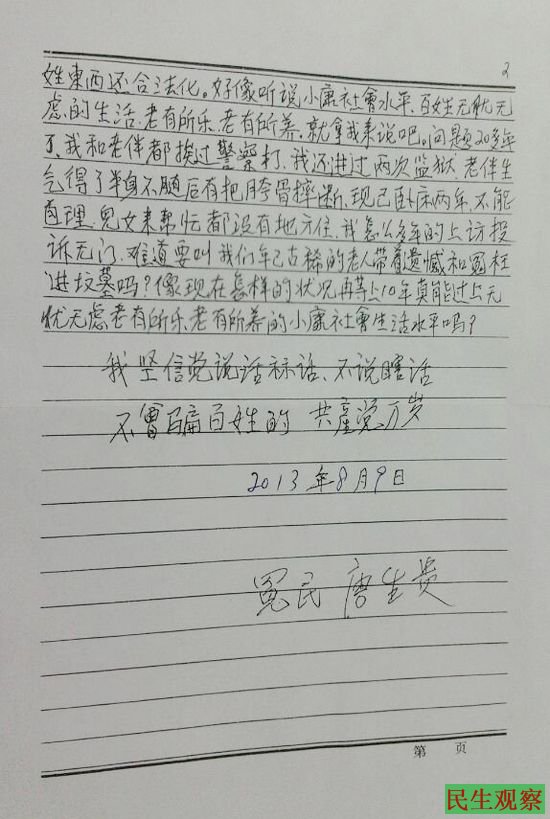 2
姓東西还合法化。好像听说小康社會水平、百姓无忧无
虑的生活、老有所乐、老有所养、就拿我来说吧。问题20多年
了、我和老伴都挨过警察打、我还进过两次监狱、老伴生
气得了半身不随后有把胯骨摔断、现已卧床两年、不能
自理、兒女来帮忙都没有地方住、我怎么多年的上访投
诉无门、难道要叫我们年已古稀的老人带着遗憾和冤枉
进坟墓吗？像现在怎样的状况再等上10年真能过上无
忧无虑、老有所乐、老有所养的小康社會生活水平吗？
我坚信党说话标话、不说瞎话
不會骗百姓的 共産党万岁
2013年8月9日
冤民 唐生贵
第 页
民生观察